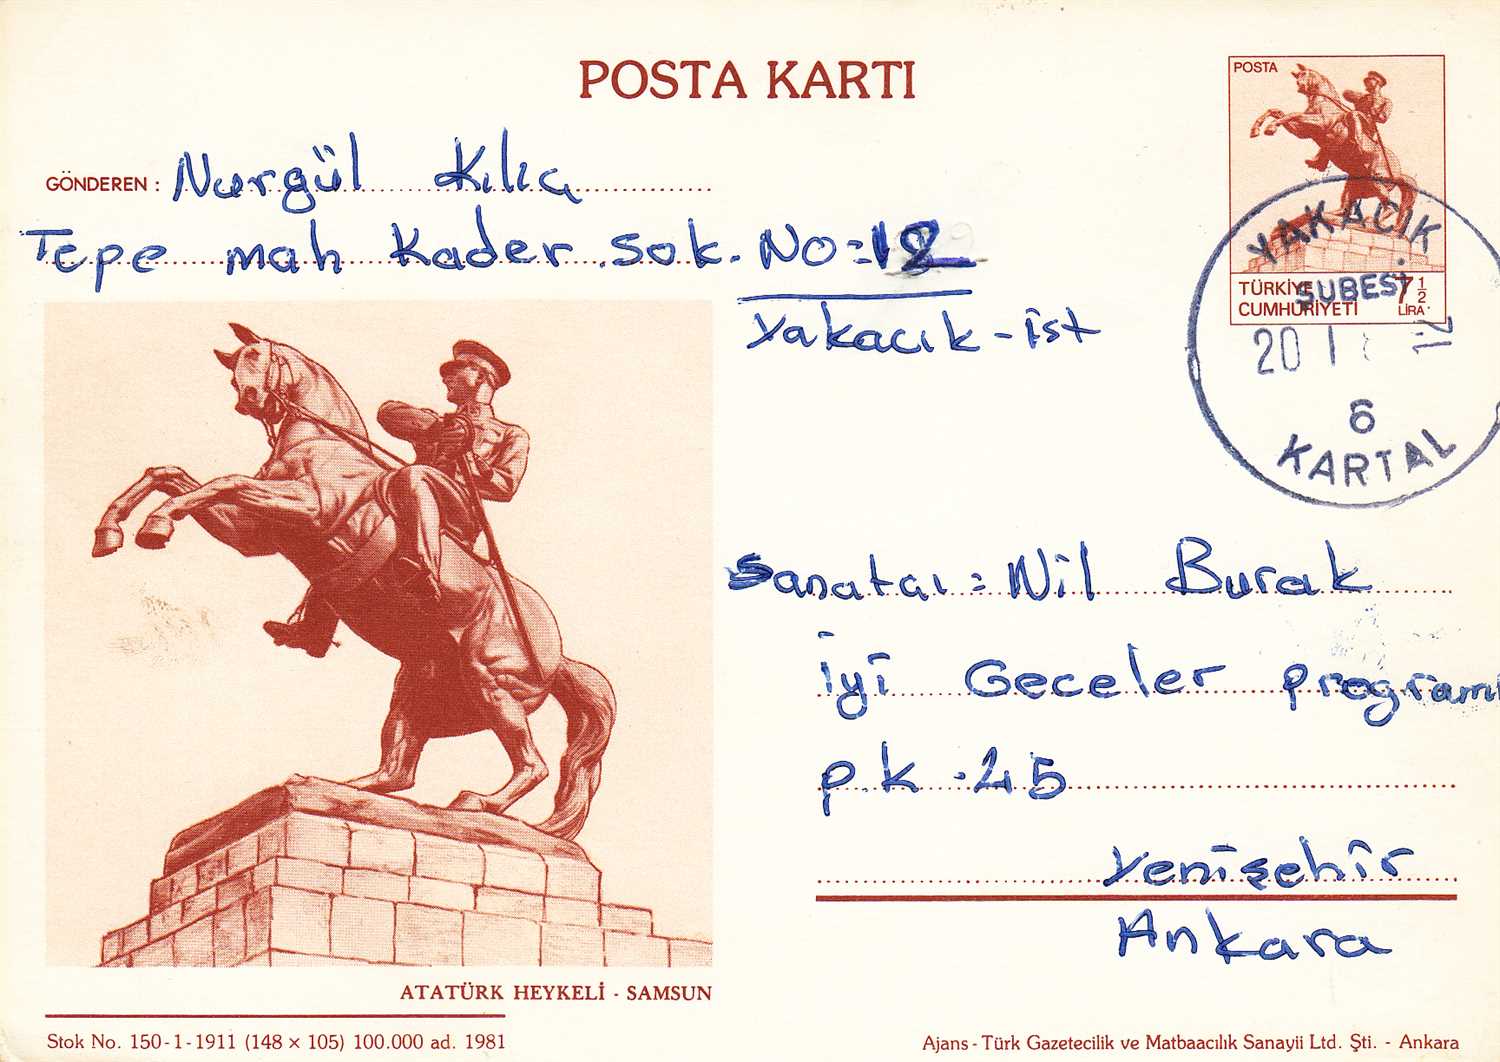 POSTA KARTI
GÖNDEREN : Nurgül Kılıç
Tepe mah Kader sok. No=12
Yakacık - ist
POSTA
TÜRKİYE
CUMHURİYETİ
7 1/2
LİRA
YAKACIK
ŞUBESİ
20 1
6
KARTAL
Sanatcı = Nil Burak
iyi Geceler programı
p.k. 45
Yenişehir
Ankara
ATATÜRK HEYKELİ - SAMSUN
Stok No. 150-1-1911 (148 × 105) 100.000 ad. 1981
Ajans - Türk Gazetecilik ve Matbaacılık Sanayii Ltd. Şti. - Ankara